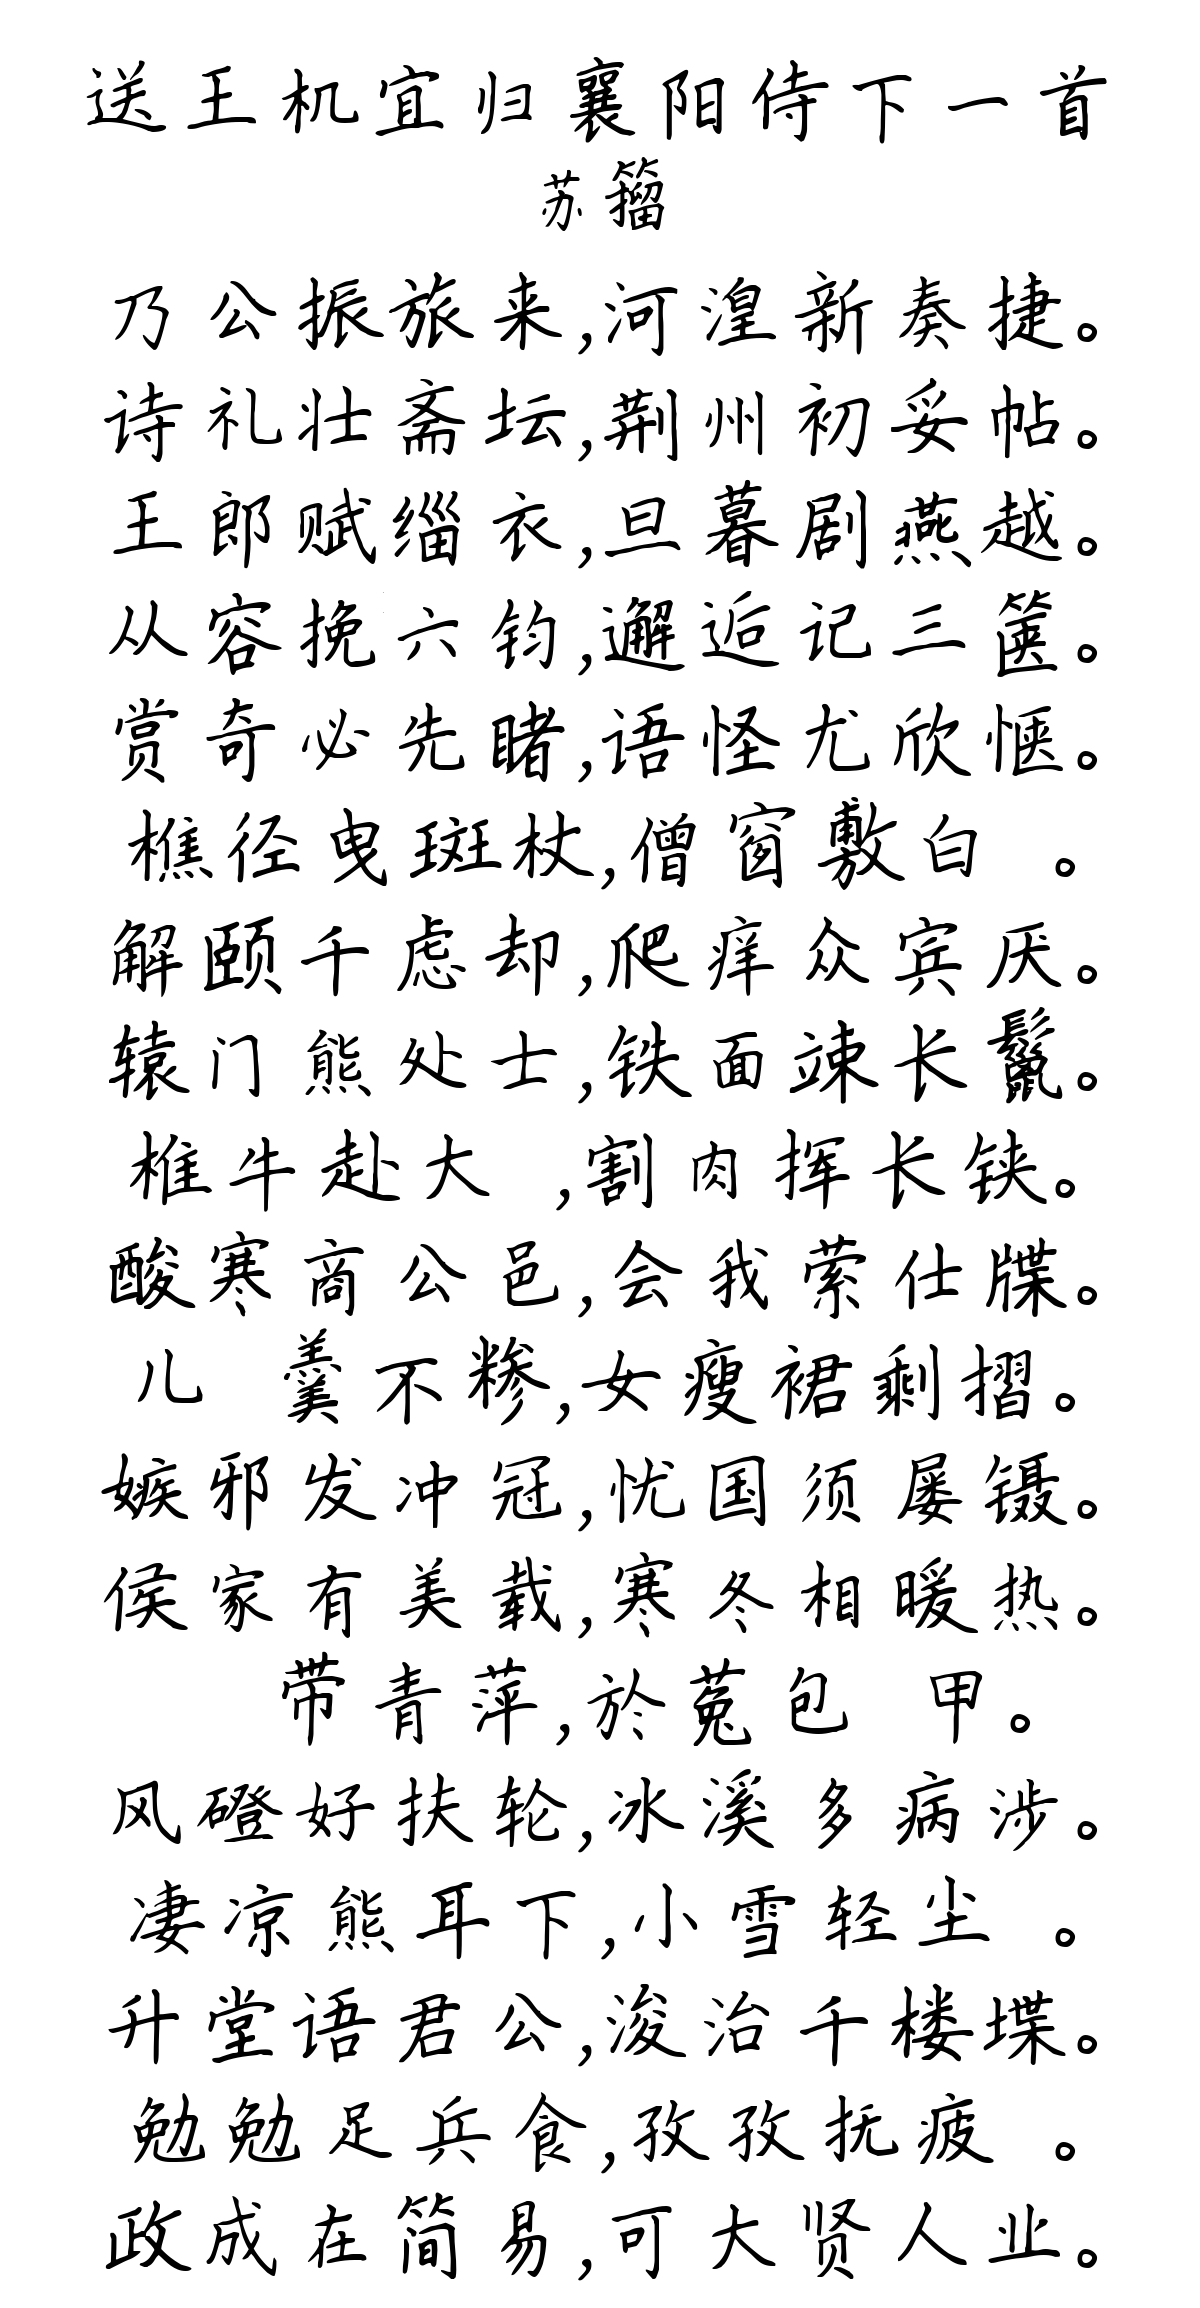 送王机宜归襄阳侍下一首
苏籀
乃公振旅来,河湟新奏捷。
诗礼壮斋坛,荆州初妥帖。
王郎赋缁衣,旦暮剧燕越。
从容挽六钧,邂逅记三箧。
赏奇必先睹,语怪尤欣惬。
樵径曳斑杖,僧窗敷白 。
解颐千虑却,爬痒众宾厌。
辕门熊处士,铁面竦长鬣。
椎牛赴大 ,割肉挥长铗。
酸寒商公邑,会我萦仕牒。
儿 羹不糁,女瘦裙剩摺。
嫉邪发冲冠,忧国须屡镊。
侯家有美载,寒冬相暖热。
带青萍,於菟包 甲。
风磴好扶轮,冰溪多病涉。
凄凉熊耳下,小雪轻尘 。
升堂语君公,浚治千楼堞。
勉勉足兵食,孜孜抚疲 。
政成在简易,可大贤人业。